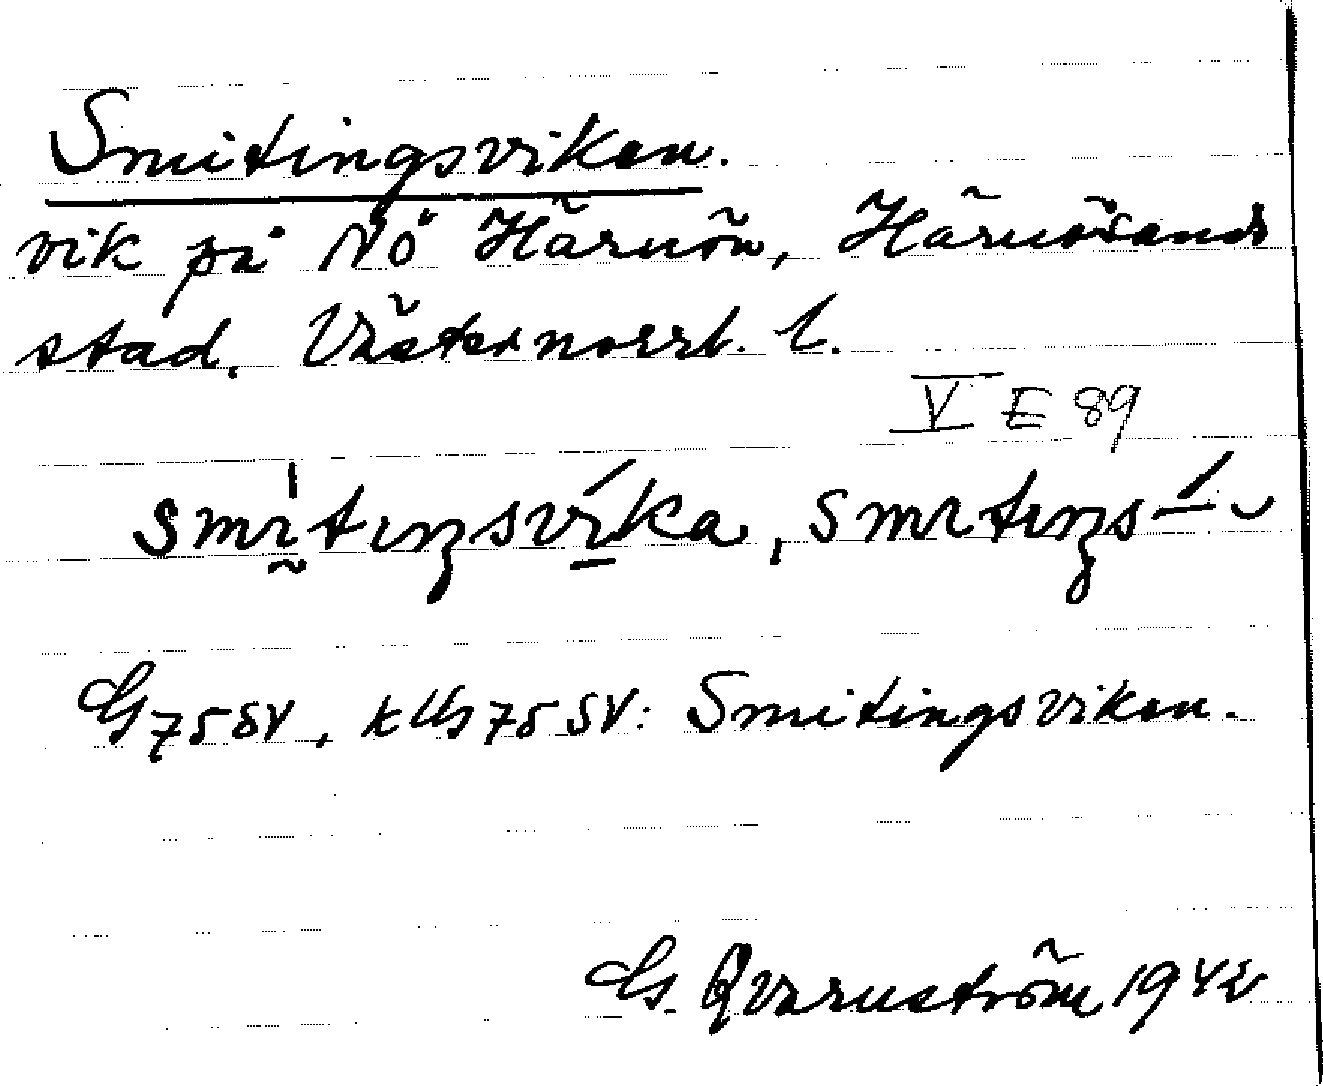 Smitingsviken.
vik på NÖ Härnön, Härnösands
stad, Västernorrl. l.
V E 89
smìtıŋsvíka, smıtıŋs
G 75 SV, kG 75 SV: Smitingsviken.
G. Qvarnström 1942